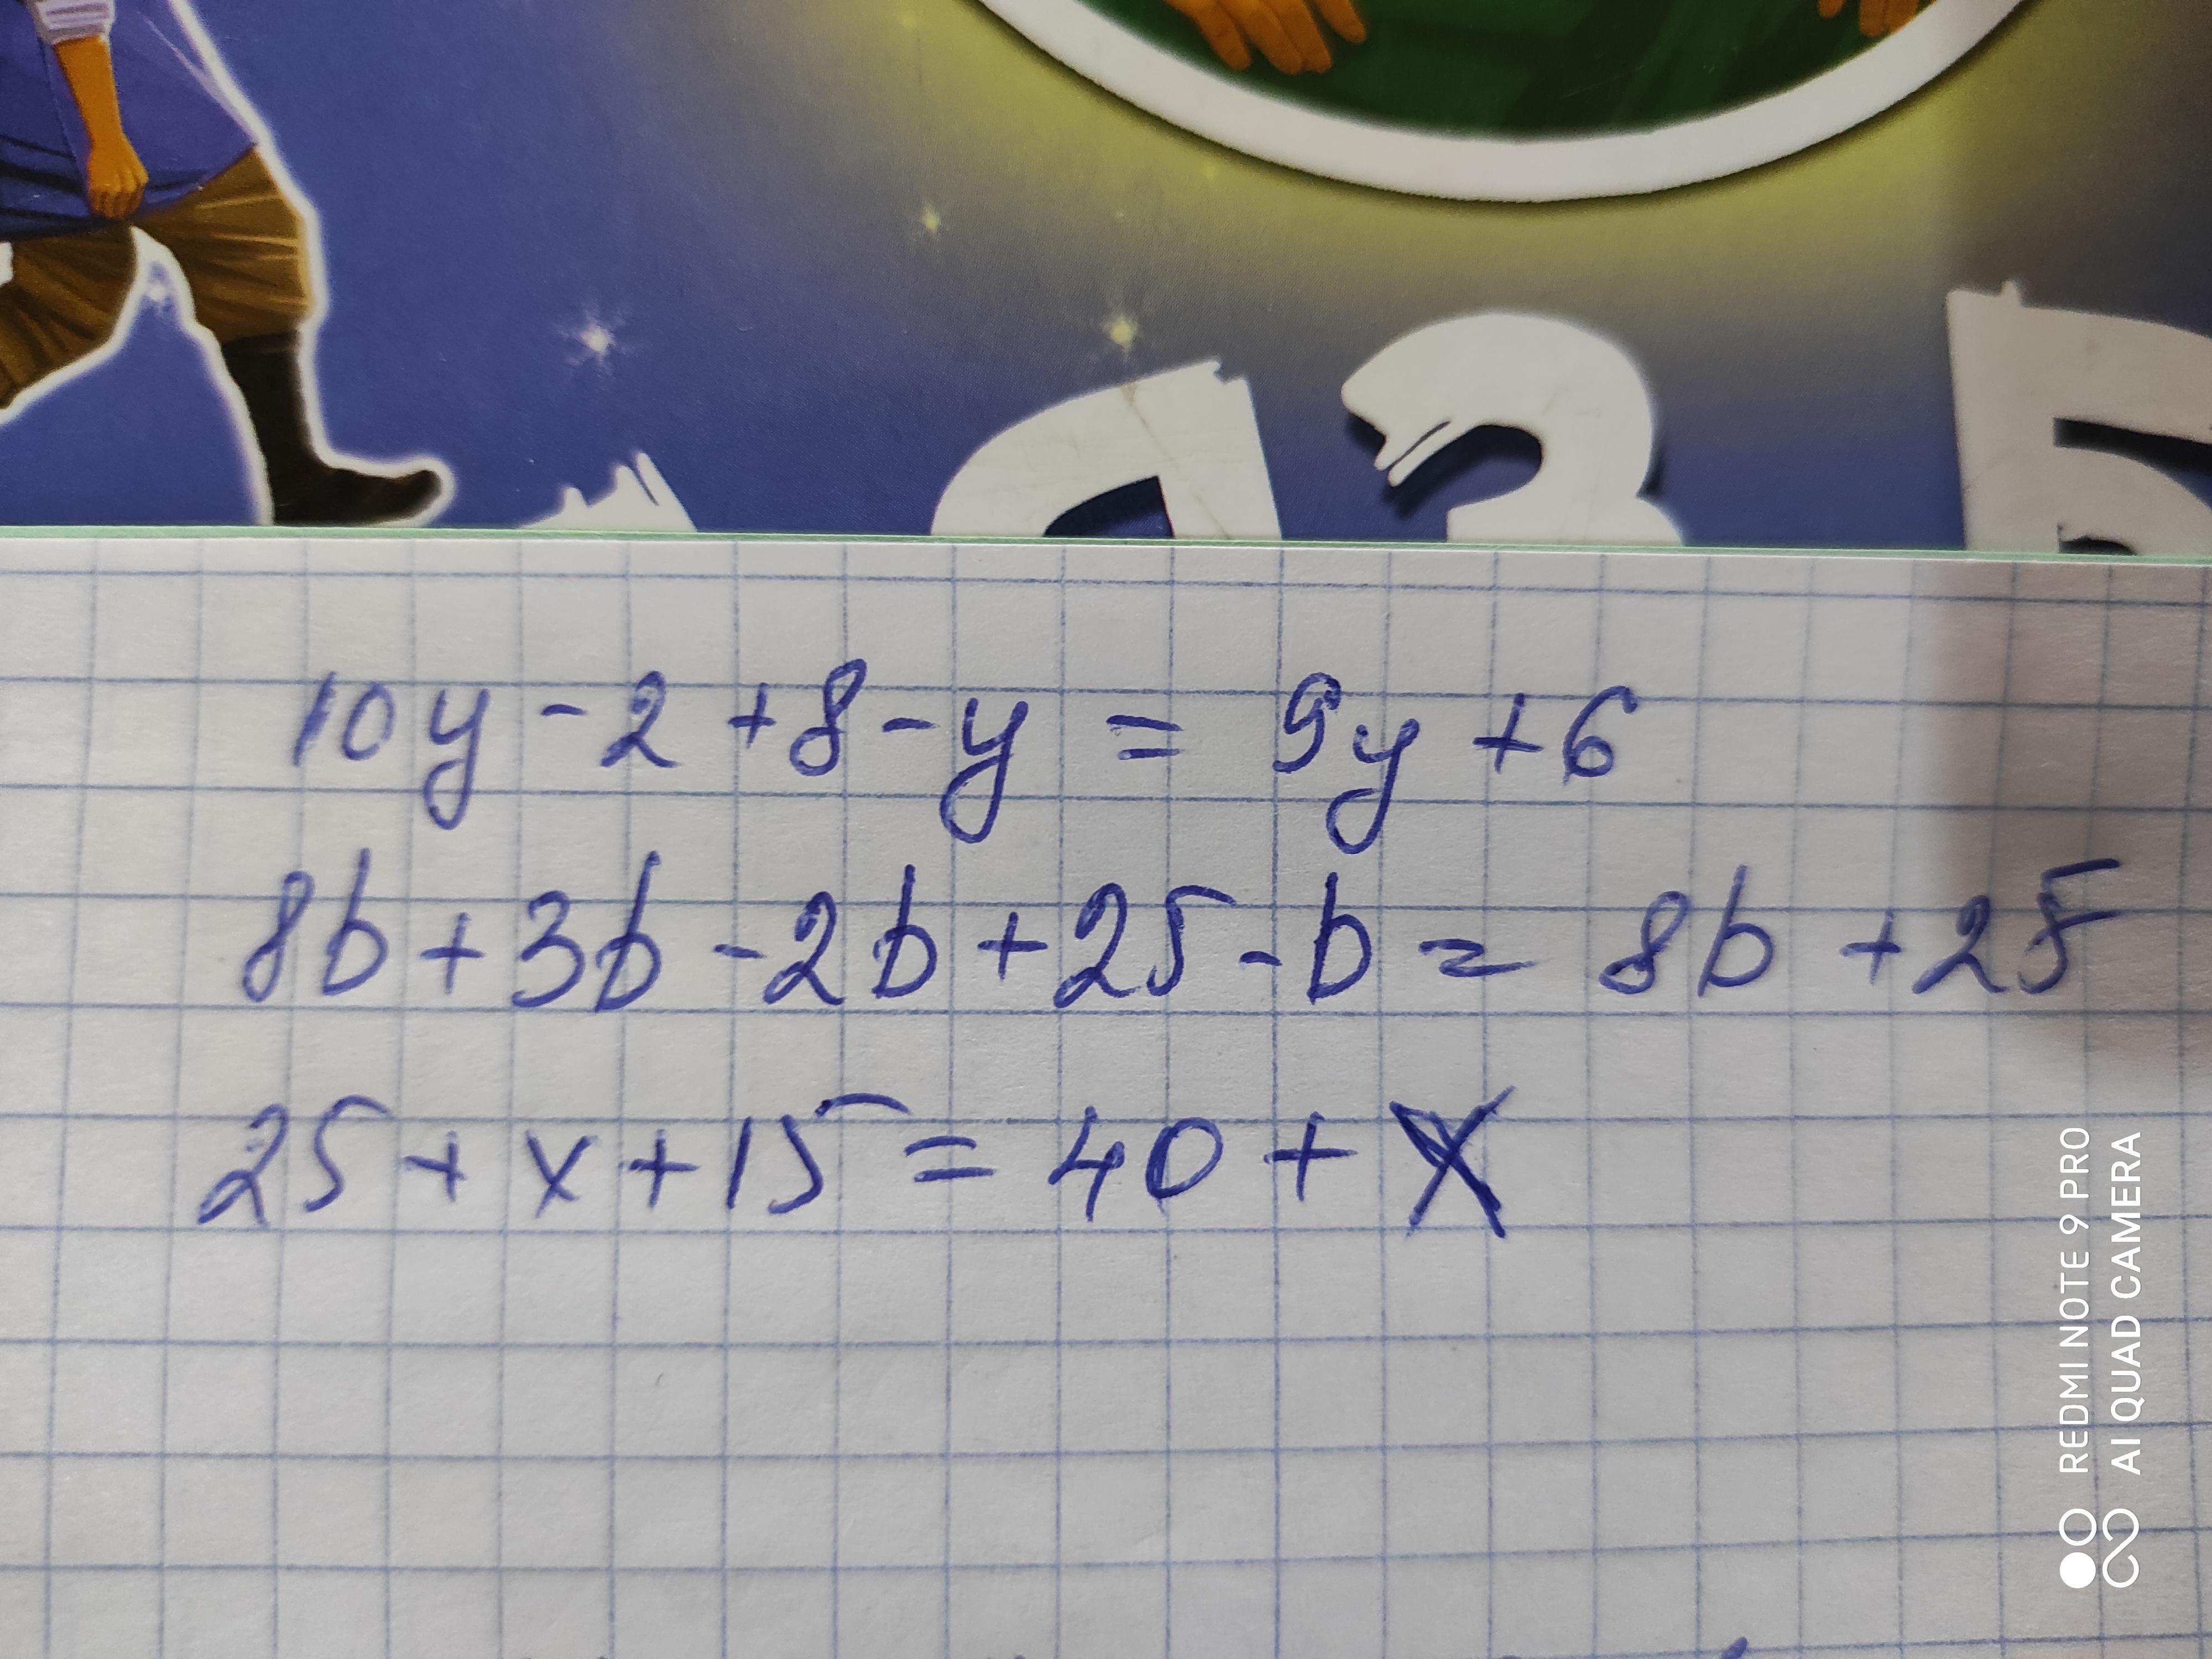 10y - 2 + 8 - y = 9y + 6
8b + 3b - 2b + 25 - b = 8b + 25
25 + x + 15 = 40 + x
REDMI NOTE 9 PRO
AI QUAD CAMERA